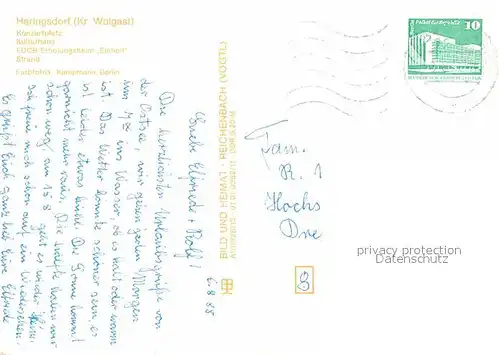 Heringsdorf (Kr. Wolgast)
Konzertplatz
Kulturhaus
FDGB-Erholungsheim „Einheit“
Strand
Farbfotos: Kampmann, Berlin
BILD UND HEIMAT · REICHENBACH (VOGTL)
6.8.85
Liebe Elfriede + Rolf!
Die herzlichsten Urlaubsgrüße von
der Ostsee, wir gehen jeden Morgen
um ins Wasser, ob es kalt oder warm
ist. Das Wetter könnte schöner sein, es
ist leider etwas kühl. Die Sonne kommt
garnicht mehr raus. Die Hälfte haben wir
schon weg, am 15.8. geht es wieder heim
ich freue mich schon auf ein Wiedersehen.
Es grüßt Euch ganz lieb Eure Elfriede
10
Fam.
R. 1
Hochs
Dre
privacy protection
Datenschutz